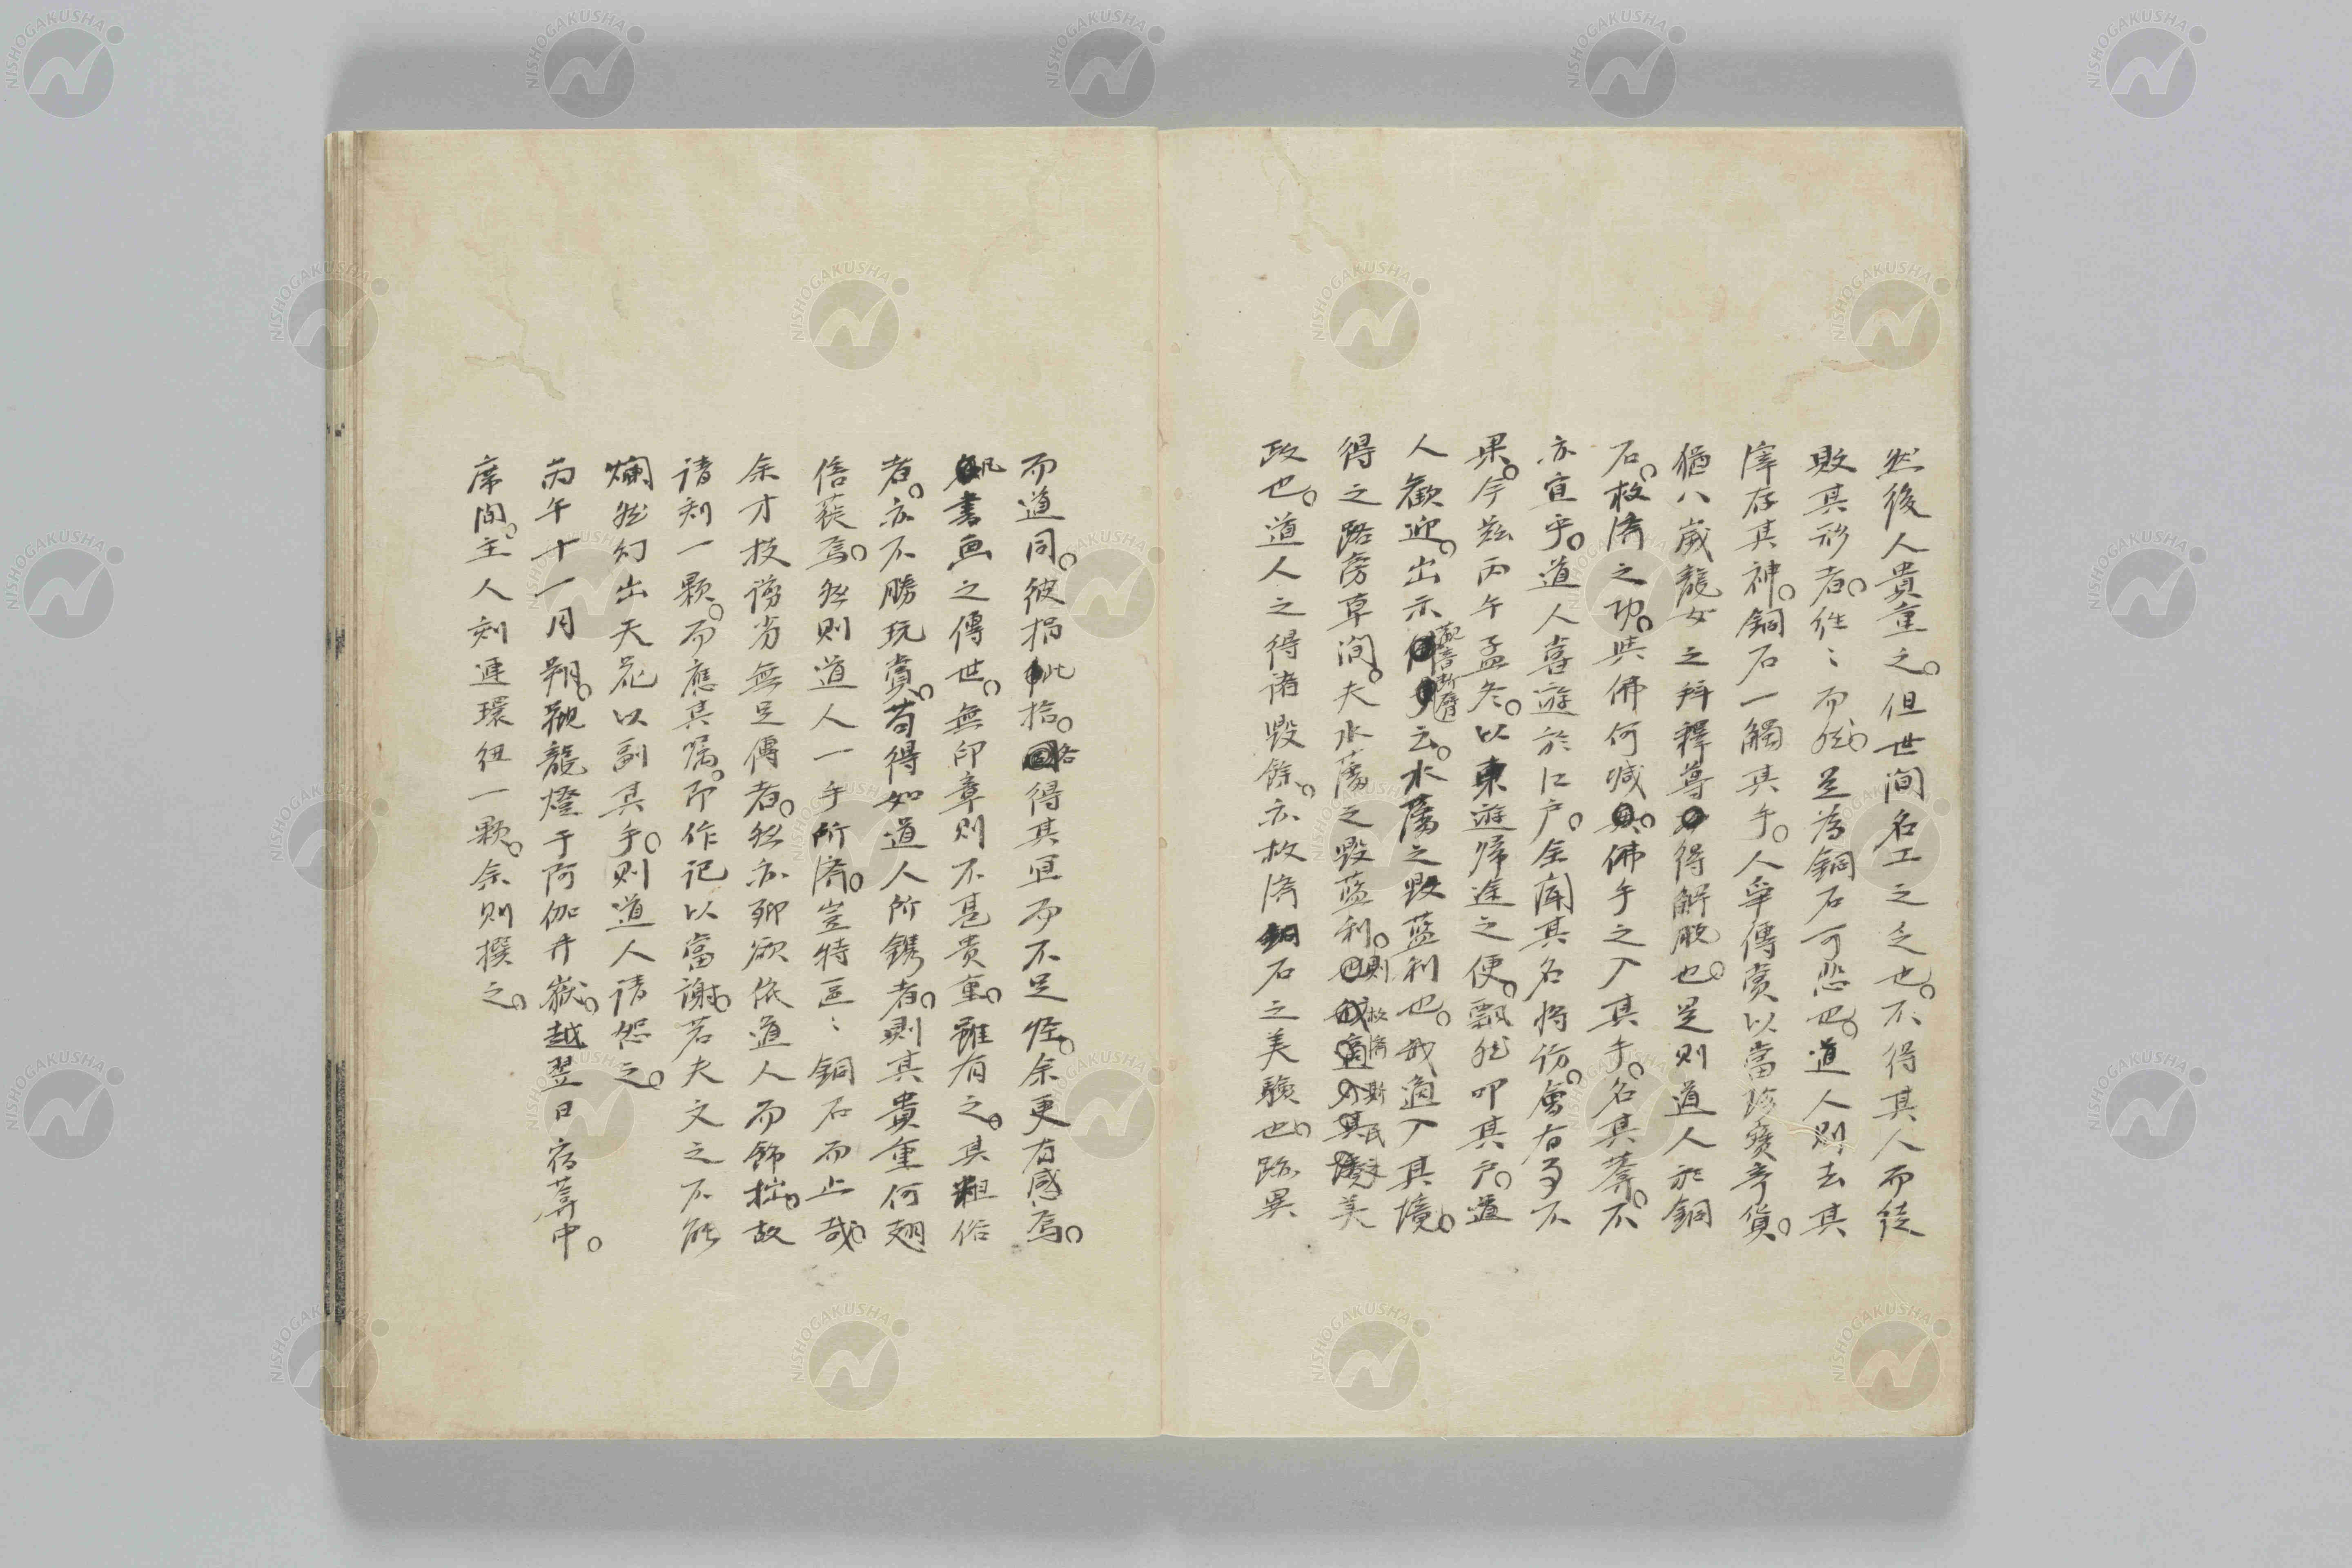 然後人貴重之。但世間名工之乏也。不得其人而徒
敗其形者。往々而然。足為銅石可悲也。道人則去其
滓存其神。銅石一觸其手。人争傳賞以當珍寶奇貨。
猶八歳龍女之拜釋尊得解脱也。是則道人於銅
石。救済之功。與佛何减。佛手之入其手。名其葊。不
亦宜乎。道人喜遊於江戸。余聞其名將訪。會有事不
果。今茲丙午孟冬。以東遊歸途之便。飄然叩其戸。道
人歓迎。出示云。水藩之毀藍利也。我適入其境。
得之路傍草間。夫水藩之毀藍利。則救済斯民美
政也。道人之得諸毀餘。亦救済銅石之美験也。跡異
而道同。彼捐此拾。各得其宜而不足怪。余更有感焉。
凡書画之傳世。無印章則不甚貴重。雖有之。其粗俗
者。亦不勝玩賞。苟得如道人所鐫者。則其貴重何翅
倍蓰焉。然則道人一手所済。豈特區々銅石而止哉。
余才技謭劣無足傳者。然亦聊欲依道人而飾拙。故
請刻一顆。而應其嘱。即作記以當謝。若夫文之不能
爛然幻出天花以副其手。則道人請恕之。
丙午十一月朔。觀龍燈于阿伽井嶽。越翌日宿葊中。
席間。主人刻連環紐一顆。余則撰之。